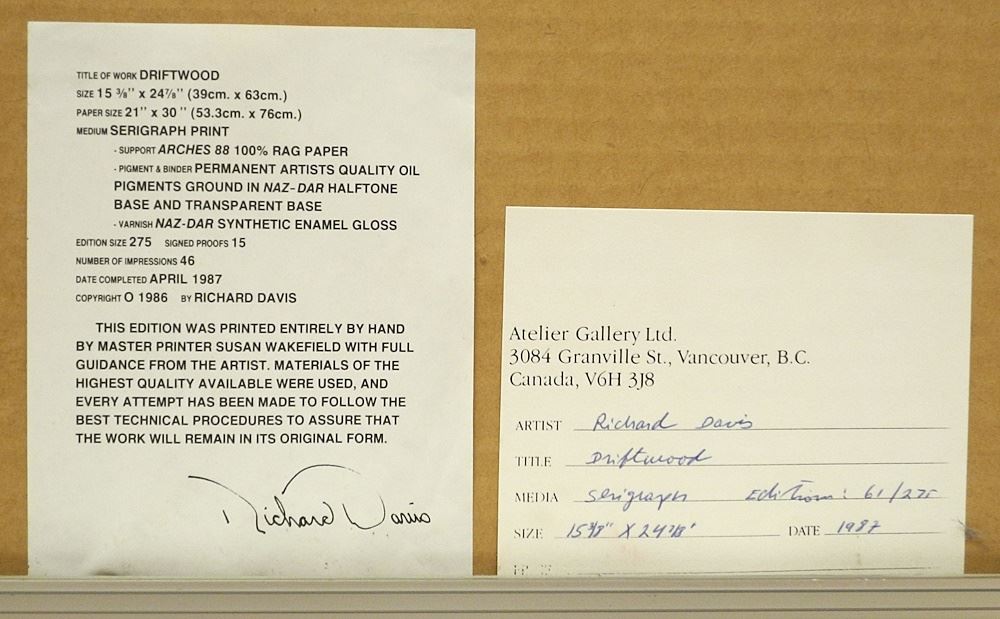 TITLE OF WORK DRIFTWOOD
SIZE 15 3/8" x 24 7/8" (39cm. x 63cm.)
PAPER SIZE 21" x 30" (53.3cm. x 76cm.)
MEDIUM SERIGRAPH PRINT
- SUPPORT ARCHES 88 100% RAG PAPER
- PIGMENT & BINDER PERMANENT ARTISTS QUALITY OIL
PIGMENTS GROUND IN NAZ-DAR HALFTONE
BASE AND TRANSPARENT BASE
- VARNISH NAZ-DAR SYNTHETIC ENAMEL GLOSS
EDITION SIZE 275 SIGNED PROOFS 15
NUMBER OF IMPRESSIONS 46
DATE COMPLETED APRIL 1987
COPYRIGHT O 1986 BY RICHARD DAVIS
THIS EDITION WAS PRINTED ENTIRELY BY HAND
BY MASTER PRINTER SUSAN WAKEFIELD WITH FULL
GUIDANCE FROM THE ARTIST. MATERIALS OF THE
HIGHEST QUALITY AVAILABLE WERE USED, AND
EVERY ATTEMPT HAS BEEN MADE TO FOLLOW THE
BEST TECHNICAL PROCEDURES TO ASSURE THAT
THE WORK WILL REMAIN IN ITS ORIGINAL FORM.
Richard Davis
Atelier Gallery Ltd.
3084 Granville St., Vancouver, B.C.
Canada, V6H 3J8
ARTIST Richard Davis
TITLE Driftwood
MEDIA Serigraph Edition: 61/275
SIZE 15 3/8" X 24 7/8" DATE 1987